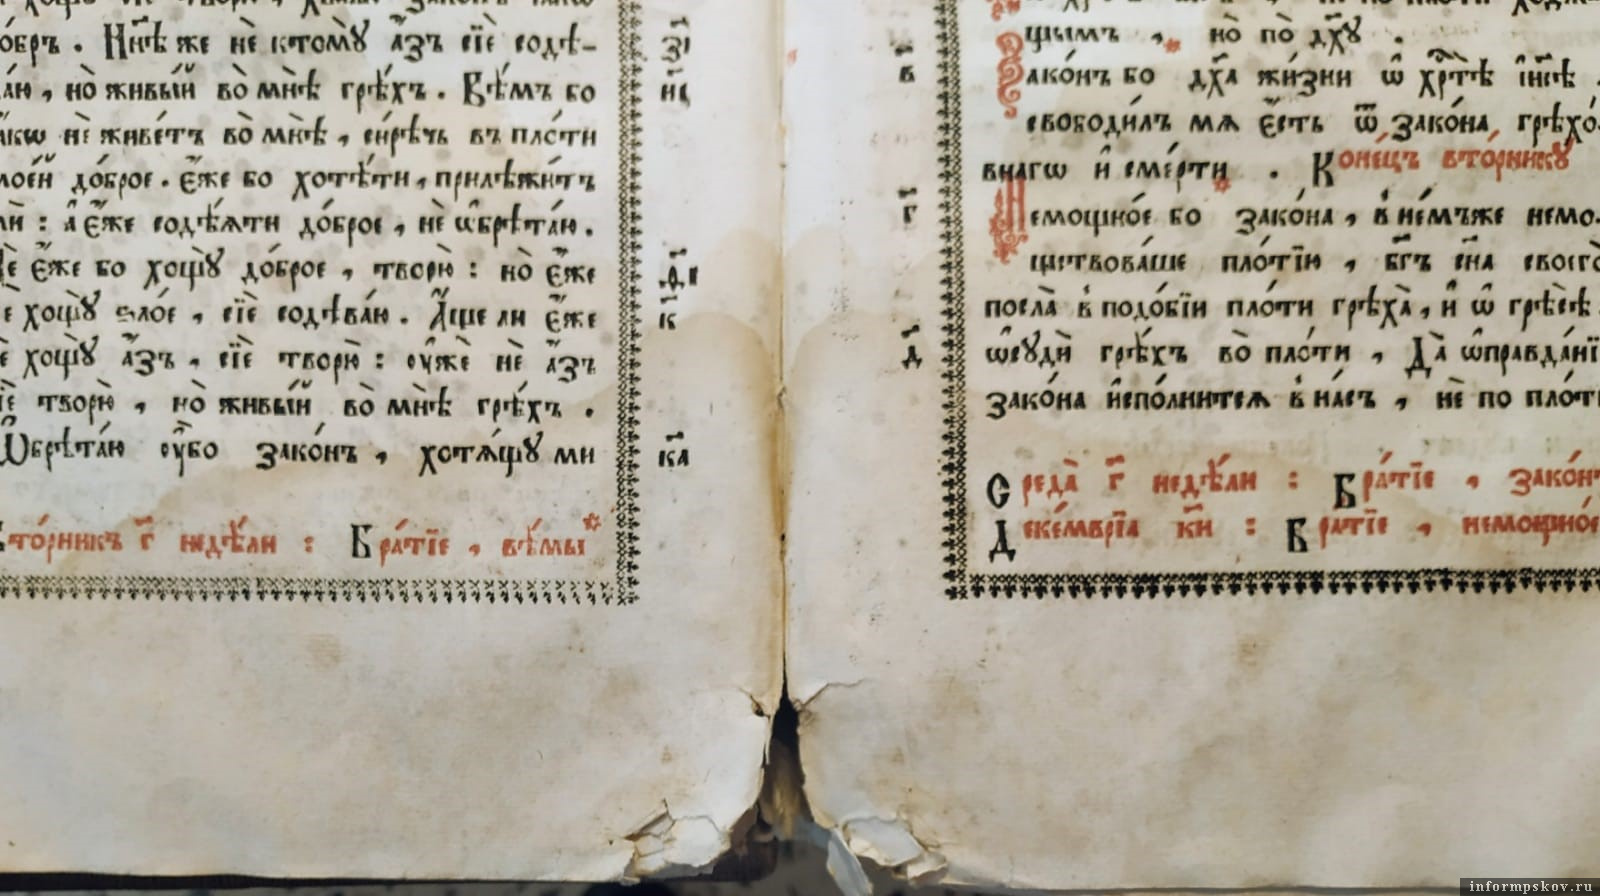 добръ. Нн҃ѣ же не ктомꙋ̀ а҆́зъ сїѐ содѣ-
но̀ живы́й во мнѣ̀ грѣ́хъ. Вѣ́мъ бо
не живе́тъ во мнѣ̀, си́рѣчь въ пло́ти
мое́й до́брое. є҆́же бо хотѣ́ти, прилѣжи́тъ
мѝ: а҆ є҆́же содѣ́ѧти до́брое, не ѡ҆брѣта́ю.
Не є҆́же бо хощꙋ̀ до́брое, творю̀: но̀ є҆́же
не хощꙋ̀ ѕло́е, сїѐ содѣва́ю. А҆́ще ли є҆́же
не хощꙋ̀ а҆́зъ, сїѐ творю̀: ᲂу҆жѐ не а҆́зъ
сїѐ творю̀, но̀ живы́й во мнѣ̀ грѣ́хъ.
Ѡ҆брѣта́ю ᲂу҆̀бо зако́нъ, хотѧ́щꙋ ми
вто́рникъ г҃ недѣ́ли: Бра́тїе, вѣ́мы*
з҃і
и҃і
ѳ҃і
к҃
к҃а
щымъ, но̀ по дх҃ꙋ.
Зако́нъ бо дх҃а жи́зни ѡ҆ хрⷭ҇тѣ̀ і҆и҃сѣ.
свободи́лъ мѧ є҆́сть ѿ зако́на грѣхо́-
внагѡ и҆ сме́рти. Коне́цъ вто́рникꙋ
Немощно́е бо зако́на, в не́мъже немо-
щствова́ше пло́тїю, бг҃ъ сн҃а своего̀
посла̀ в подо́бїи пло́ти грѣха̀, и҆ ѡ҆ грѣсѣ̀
ѡ҆сꙋдѝ грѣ́хъ во пло́ти, Да̀ ѡ҆правда́нї
зако́на и҆спо́лнитсѧ в на́съ, не по пло́ти
в҃
г҃
д҃
Среда̀ г҃ недѣ́ли: Бра́тїе, зако́нъ
Деке́мврїа к҃и: Бра́тїе, немощно́е
informpskov.ru